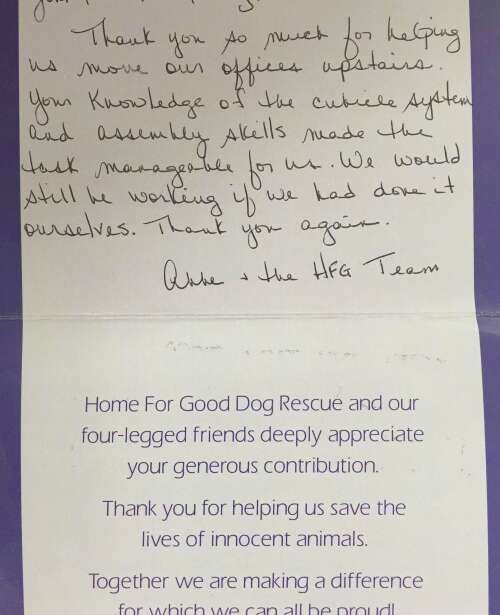 Thank you so much for helping
us move our offices upstairs.
Your knowledge of the cubicle system
and assembly skills made the
task manageable for us. We would
still be working if we had done it
ourselves. Thank you again.
Anne + the HFG Team
Home For Good Dog Rescue and our
four-legged friends deeply appreciate
your generous contribution.
Thank you for helping us save the
lives of innocent animals.
Together we are making a difference
for which we can all be proud!